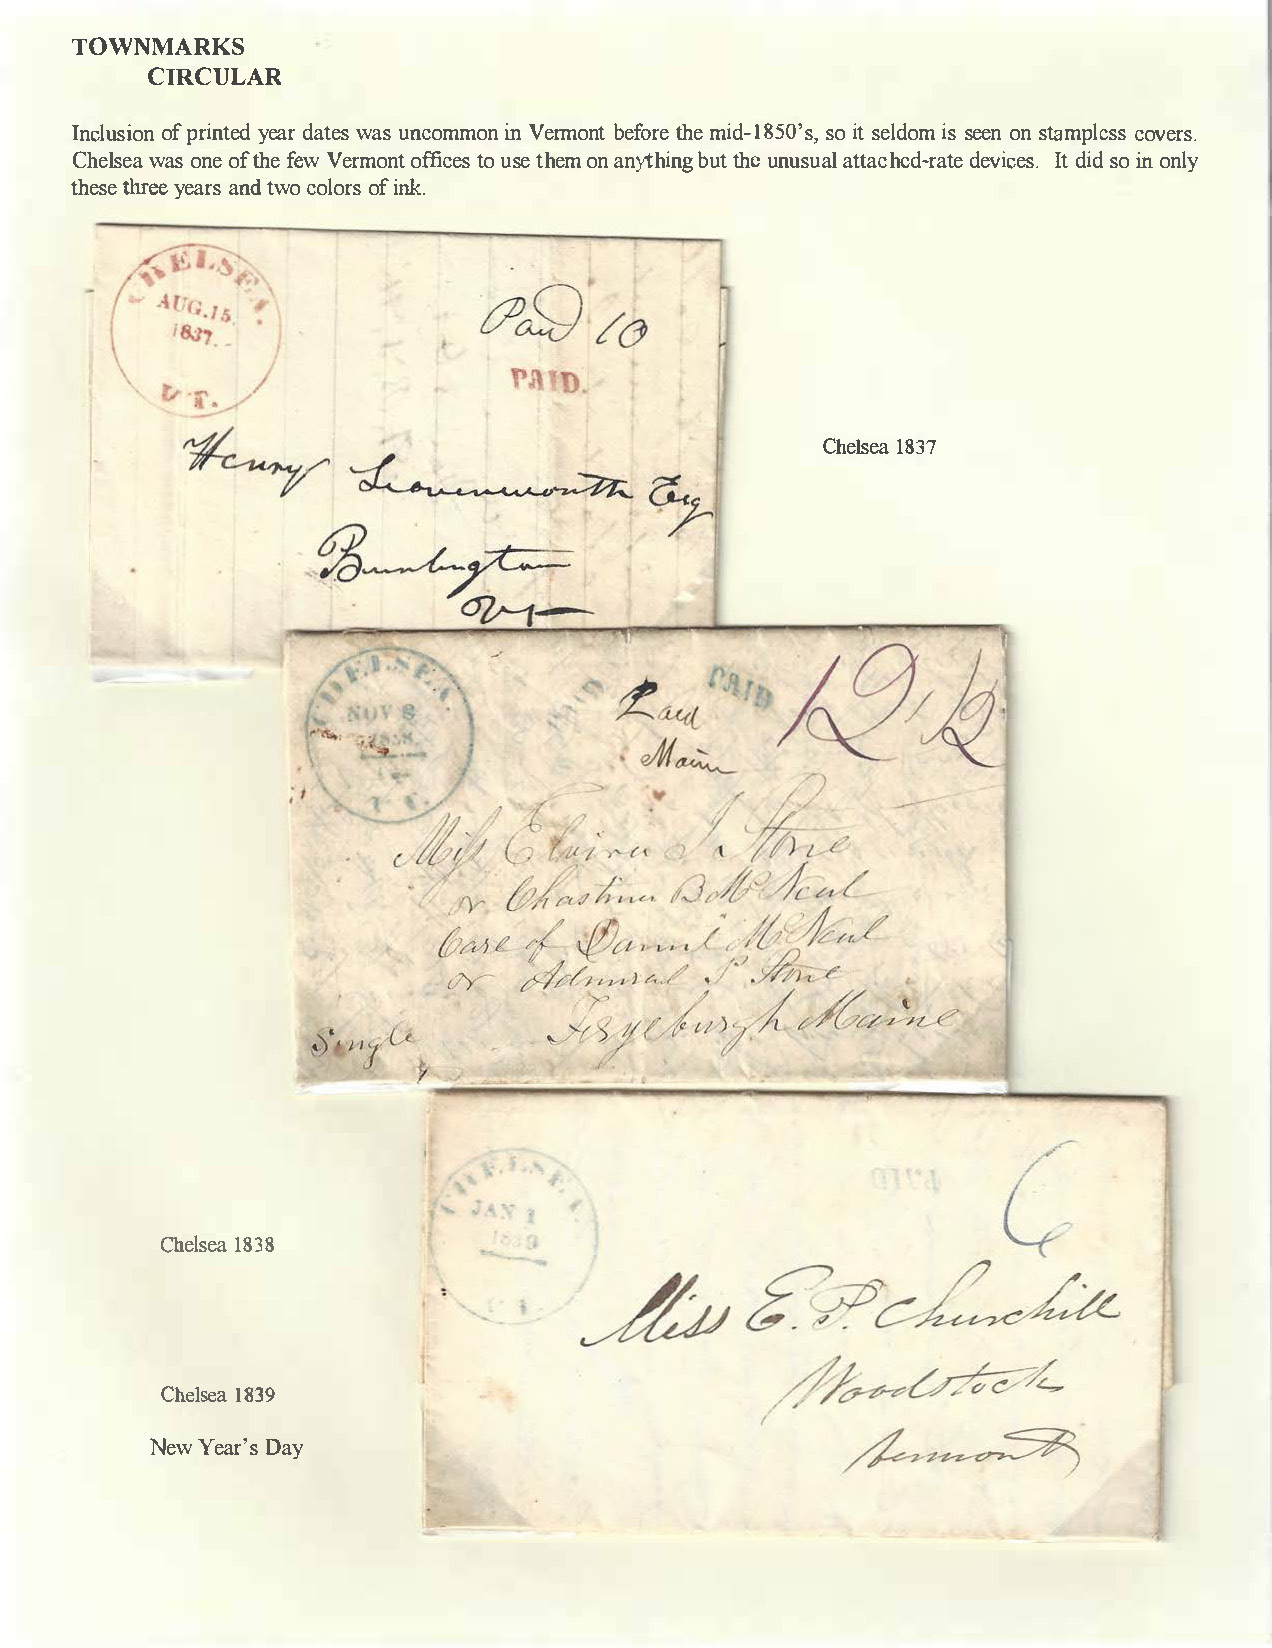 TOWNMARKS
CIRCULAR
Inclusion of printed year dates was uncommon in Vermont before the mid-1850's, so it seldom is seen on stampless covers.
Chelsea was one of the few Vermont offices to use them on anything but the unusual attached-rate devices. It did so in only
these three years and two colors of ink.
CHELSEA.
AUG. 15.
1837.
VT.
Paid 10
PAID.
Henry Leavenworth Esq
Burlington
Vt
Chelsea 1837
CHELSEA.
NOV 8
1838
VT.
PAID
Paid
Maine
12 1/2
Miss Elvira J Stone
or Chastina B McNeal
Care of Daniel McNeal
or Admiral P Stone
Fryeburgh Maine
Single
CHELSEA.
JAN 1
1839
VT.
PAID
6
Miss E. P. Churchill
Woodstock
Vermont
Chelsea 1838
Chelsea 1839
New Year's Day